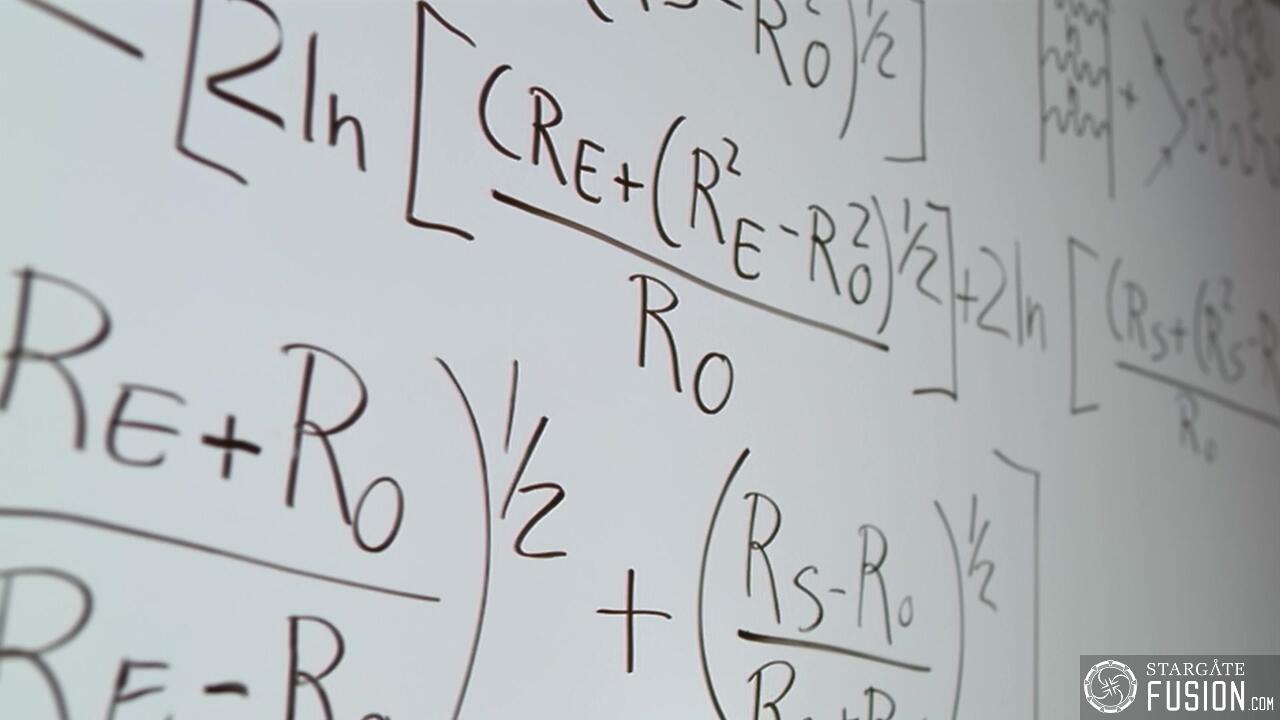 (R_S - R_0^2)^{1/2}]
- [2ln [(R_E + (R_E^2 - R_0^2)^{1/2}] + 2ln [(R_S + (R_S^2 - R
R_0 R_0
R_E + R_0)^{1/2} + (R_S - R_0)^{1/2}]
R_E - R
STARGATE
FUSION.COM